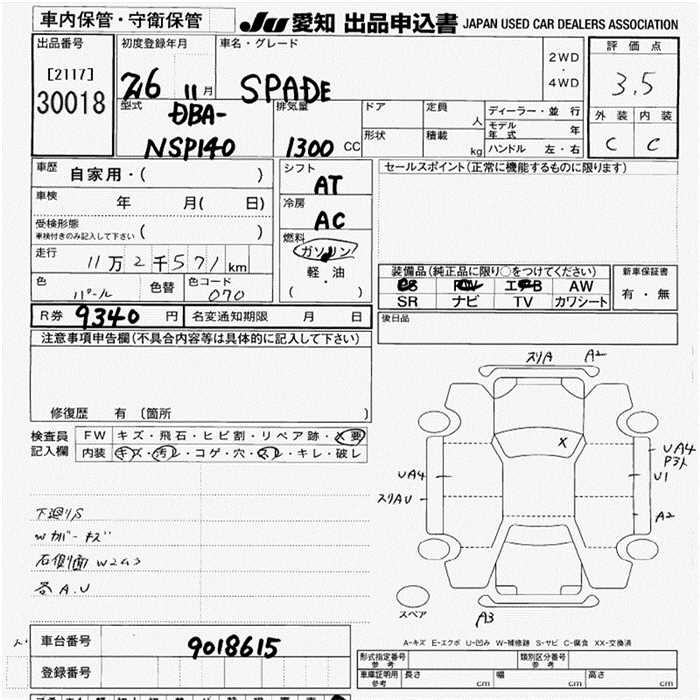 車内保管・守衛保管
JU 愛知 出品申込書 JAPAN USED CAR DEALERS ASSOCIATION
出品番号
[2117]
30018
初度登録年月
11月
車名・グレード
SPADE
2WD
・
4WD
評価点
3.5
外装 内装
C C
型式
DBA-
NSP140
排気量
1300 CC
ドア
形状
定員 人
積載 kg
ディーラー・並行
モデル年式 年
ハンドル 左・右
車歴
自家用・( )
車検
年 月( 日)
受検形態
車検付きのみ記入して下さい ( )
走行
11万2千571km
色
パール
色替
色コード
070
シフト
AT
冷房
AC
燃料
ガソリン
軽・油
( )
セールスポイント(正常に機能するものに限ります)
装備品(純正品に限り○をつけてください)
AW
SR ナビ TV カワシート
新車保証書
有・無
後日品
R券 9340 円
名変通知期限 月 日
注意事項申告欄(不具合内容等は具体的に記入して下さい)
修復歴 有 (箇所 )
検査員
記入欄
FW キズ・飛石・ヒビ割・リペア跡・X要
内装 キズ・汚レ・コゲ・穴・スレ・キレ・破レ
下廻りS
Wガーキズ
各A.U
スリA A2
X
UA4
スリAU
UA4
U1
A2
スペア
A3
A-キズ E-エクボ U-凹み W-補修跡 S-サビ C-腐食 XX-交換済
車台番号
9018615
登録番号
形式指定番号
参考
類別区分番号
参考
車庫証明用
参考
長さ cm
幅 cm
高さ cm